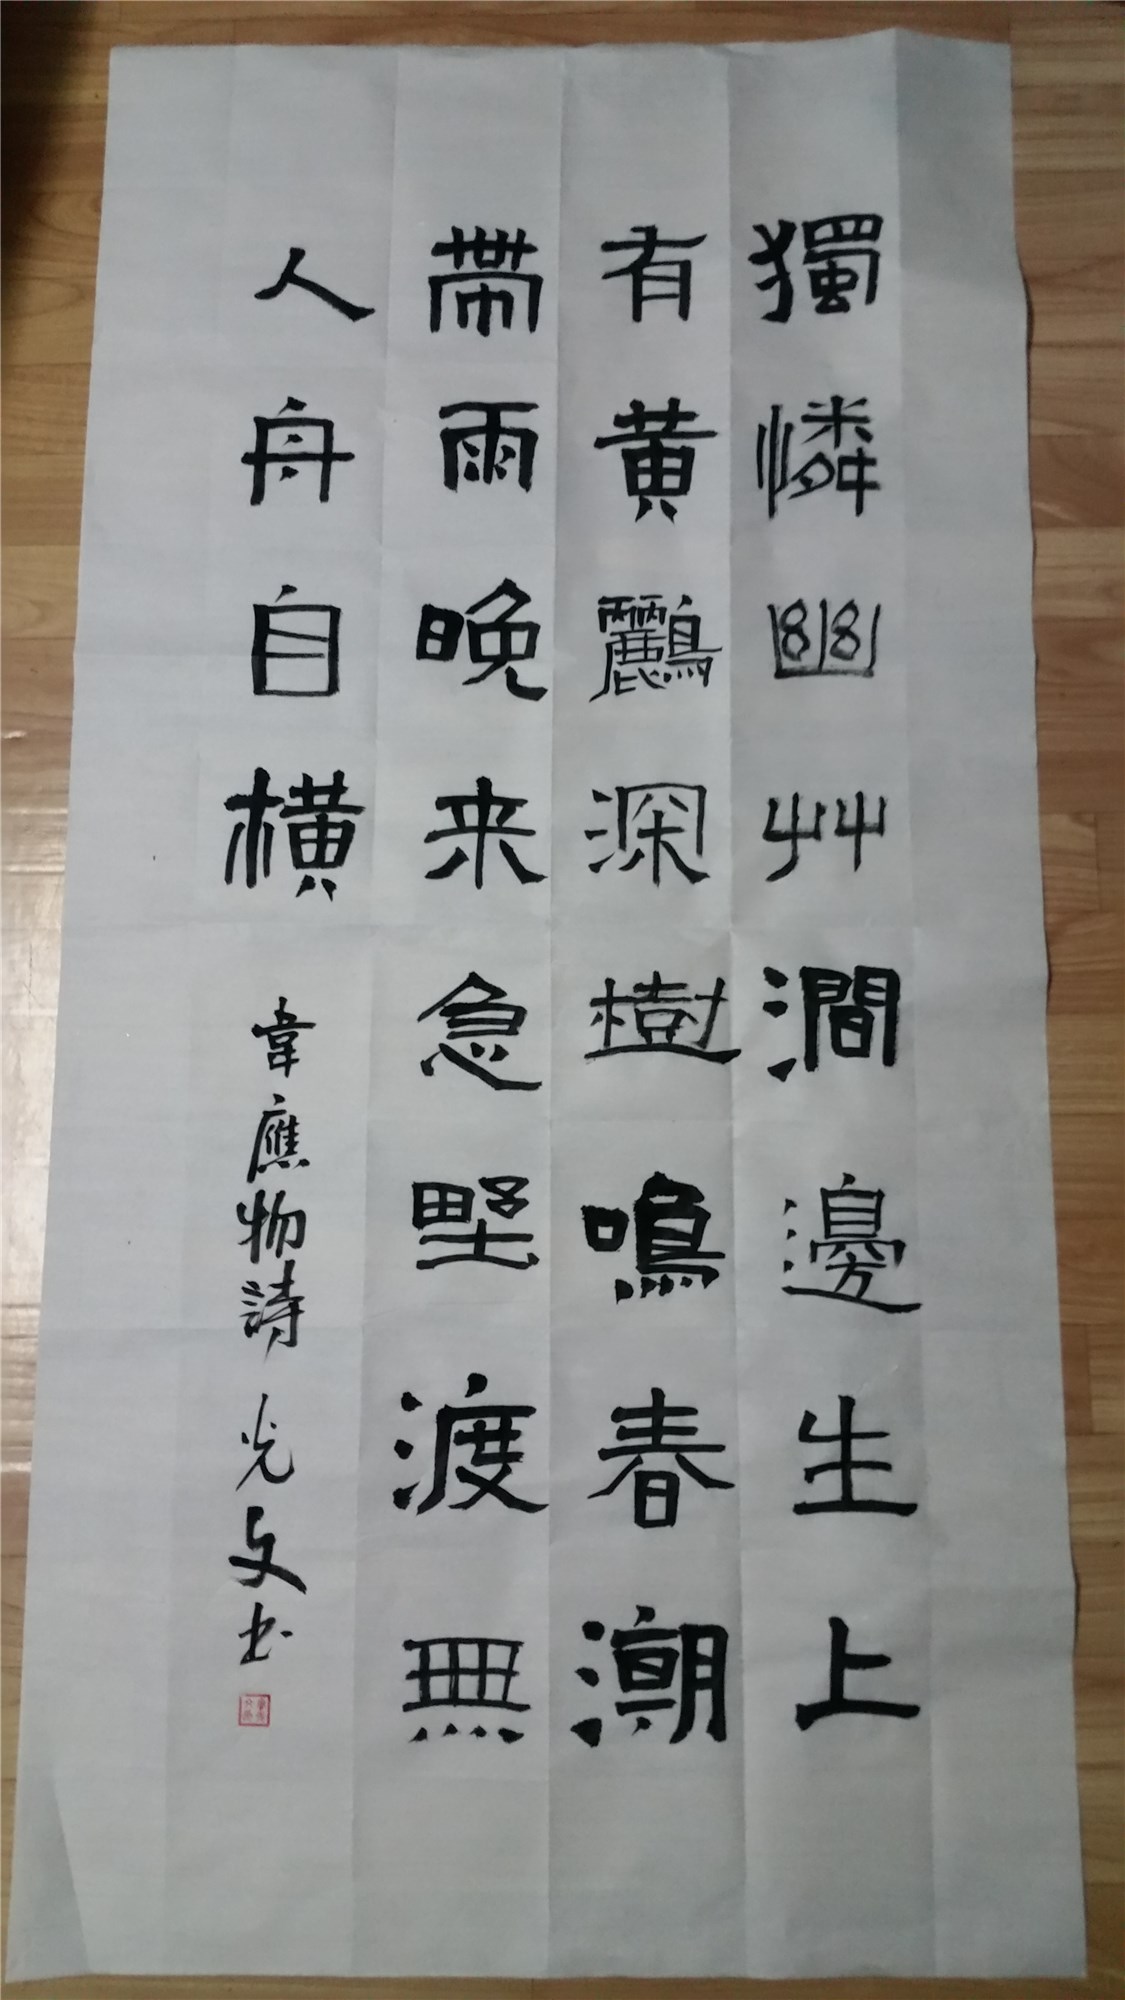 獨憐幽艸澗邊生上
有黄鸝深樹鳴春潮
帶雨晚来急野渡無
人舟自橫
韋應物詩 光文书